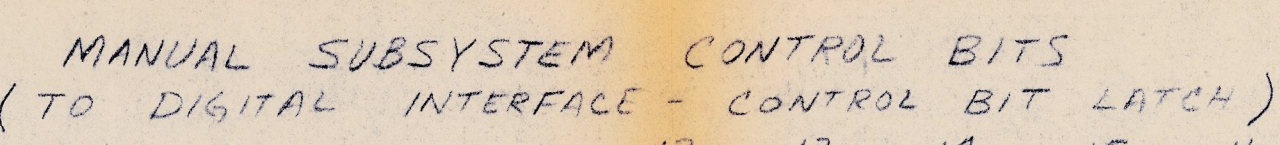 MANUAL SUBSYSTEM CONTROL BITS
(TO DIGITAL INTERFACE - CONTROL BIT LATCH)